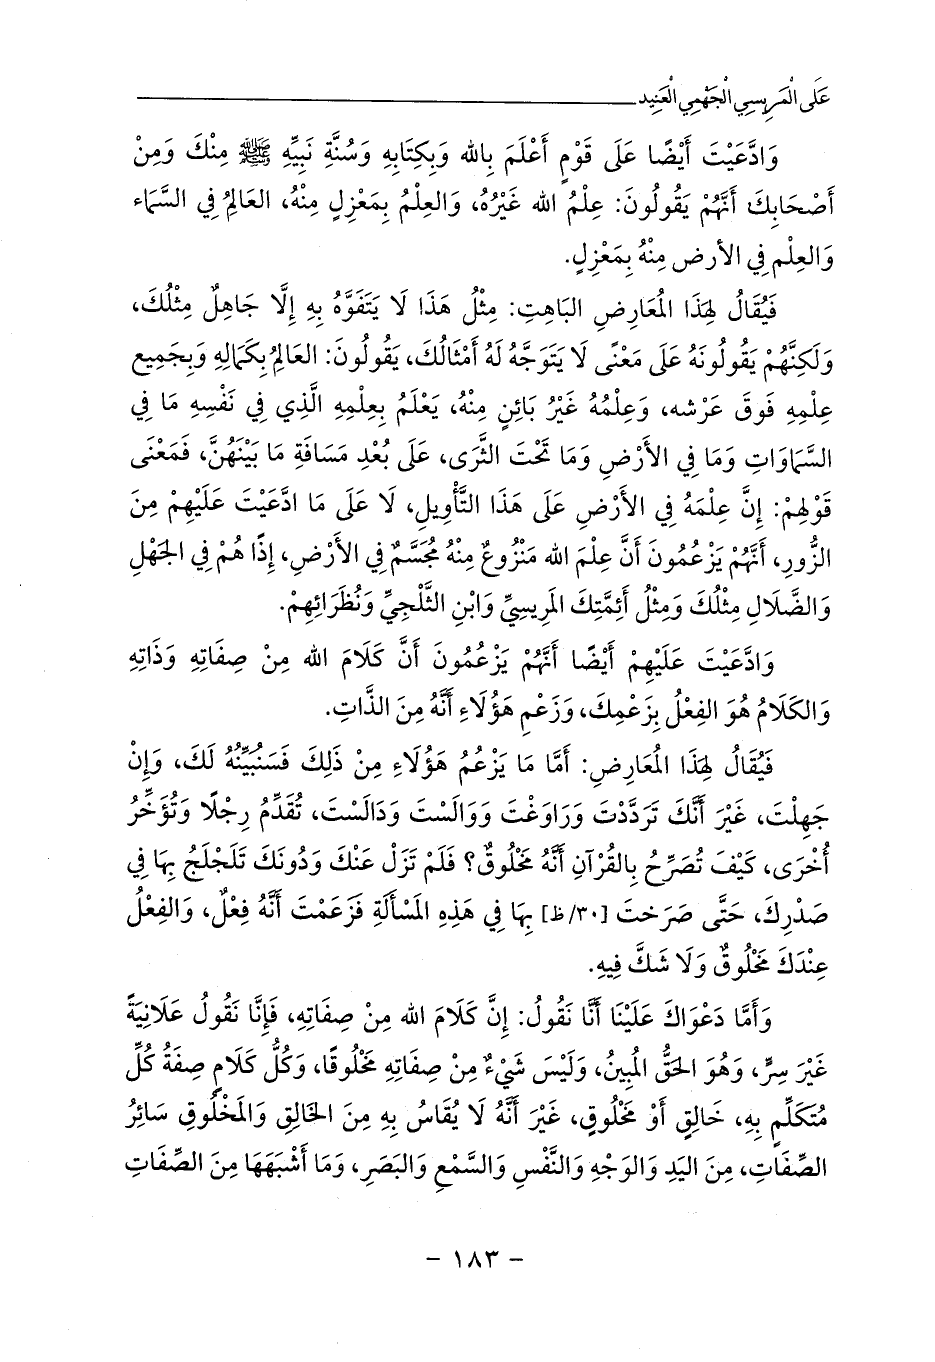 عَلَى الْمَرِيسِي الْجَهْمِي الْعَنِيد
وَادَّعَيْتَ أَيْضًا عَلَى قَوْمٍ أَعْلَمَ بِالله وَبِكِتَابِهِ وَسُنَّةِ نَبِيِّهِ ﷺ مِنْكَ وَمِنْ
أَصْحَابِكَ أَنَّهُمْ يَقُولُونَ: عِلْمُ الله غَيْرُهُ، وَالعِلْمُ بِمَعْزِلٍ مِنْهُ، العَالِمُ فِي السَّمَاء
وَالعِلْم فِي الأرض مِنْهُ بِمَعْزِلٍ.
فَيُقَالُ لِهَذَا المُعَارِضِ البَاهِتِ: مِثْلُ هَذَا لَا يَتَفَوَّهُ بِهِ إِلَّا جَاهِلٌ مِثْلُكَ،
وَلَكِنَّهُمْ يَقُولُونَهُ عَلَى مَعْنًى لَا يَتَوَجَّهُ لَهُ أَمْثَالُكَ، يَقُولُونَ: العَالِمُ بِكَمَالِهِ وَبِجَمِيعِ
عِلْمِهِ فَوقَ عَرْشه، وَعِلْمُهُ غَيْرُ بَائِنٍ مِنْهُ، يَعْلَمُ بِعِلْمِهِ الَّذِي فِي نَفْسِهِ مَا فِي
السَّمَاوَاتِ وَمَا فِي الأَرْضِ وَمَا تَحْتَ الثَّرَى، عَلَى بُعْدِ مَسَافَةِ مَا بَيْنَهُنَّ، فَمَعْنَى
قَوْلِهِمْ: إِنَّ عِلْمَهُ فِي الأَرْضِ عَلَى هَذَا التَّأْوِيلِ، لَا عَلَى مَا ادَّعَيْتَ عَلَيْهِمْ مِنَ
الزُّورِ، أَنَّهُمْ يَزْعُمُونَ أَنَّ عِلْمَ الله مَنْزُوعٌ مِنْهُ مُجَسَّمٌ فِي الأَرْضِ، إِذًا هُمْ فِي الجَهْلِ
وَالضَّلَالِ مِثْلُكَ وَمِثْلُ أَئِمَّتِكَ المَرِيسِيِّ وَابْنِ الثَّلْجِيِّ وَنُظَرَائِهِمْ.
وَادَّعَيْتَ عَلَيْهِمْ أَيْضًا أَنَّهُمْ يَزْعُمُونَ أَنَّ كَلَامَ الله مِنْ صِفَاتِهِ وَذَاتِهِ
وَالكَلَامُ هُوَ الفِعْلُ بِزَعْمِكَ، وَزَعْمِ هَؤُلَاءِ أَنَّهُ مِنَ الذَّاتِ.
فَيُقَالُ لِهَذَا المُعَارِضِ: أَمَّا مَا يَزْعُمُ هَؤُلَاءِ مِنْ ذَلِكَ فَسَنُبَيِّنُهُ لَكَ، وَإِنْ
جَهِلْتَ، غَيْرَ أَنَّكَ تَرَدَّدْتَ وَرَاوَغْتَ وَوَالَسْتَ وَدَالَسْتَ، تُقَدِّمُ رِجْلًا وَتُؤَخِّرُ
أُخْرَى، كَيْفَ تُصَرِّحُ بِالقُرْآنِ أَنَّهُ مَخْلُوقٌ؟ فَلَمْ تَزَلْ عَنْكَ وَدُونَكَ تَلَجْلَجُ بِهَا فِي
صَدْرِكَ، حَتَّى صَرَحتَ [٣٠/ظ] بِهَا فِي هَذِهِ المَسْأَلَةِ فَزَعَمْتَ أَنَّهُ فِعْلٌ، وَالفِعْلُ
عِنْدَكَ مَخْلُوقٌ وَلَا شَكَّ فِيهِ.
وَأَمَّا دَعْوَاكَ عَلَيْنَا أَنَّا نَقُولُ: إِنَّ كَلَامَ الله مِنْ صِفَاتِهِ، فَإِنَّا نَقُولُ عَلَانِيَةً
غَيْرَ سِرٍّ، وَهُوَ الحَقُّ المُبِينُ، وَلَيْسَ شَيْءٌ مِنْ صِفَاتِهِ مَخْلُوقًا، وَكُلُّ كَلَامٍ صِفَةُ كُلِّ
مُتَكَلِّمٍ بِهِ، خَالِقٍ أَوْ مَخْلُوقٍ، غَيْرَ أَنَّهُ لَا يُقَاسُ بِهِ مِنَ الخَالِقِ وَالمَخْلُوقِ سَائِرُ
الصِّفَاتِ، مِنَ اليَدِ وَالوَجْهِ وَالنَّفْسِ وَالسَّمْعِ وَالبَصَرِ، وَمَا أَشْبَهَهَا مِنَ الصِّفَاتِ
- ١٨٣ -